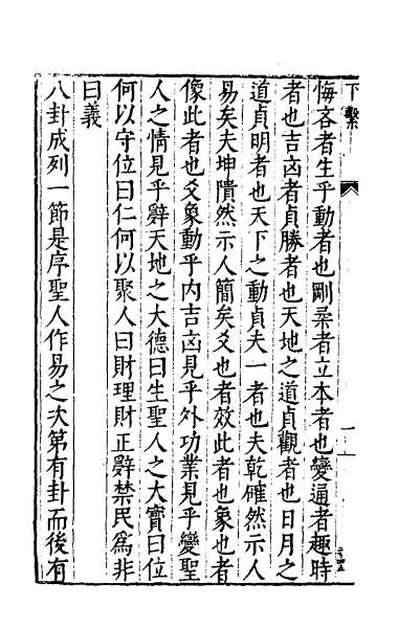 下繫
悔吝者生乎動者也剛柔者立本者也變通者趣時
者也吉凶者貞勝者也天地之道貞觀者也日月之
道貞明者也天下之動貞夫一者也夫乾確然示人
易矣夫坤隤然示人簡矣爻也者效此者也象也者
像此者也爻象動乎內吉凶見乎外功業見乎變聖
人之情見乎辭天地之大德曰生聖人之大寶曰位
何以守位曰仁何以聚人曰財理財正辭禁民為非
曰義
八卦成列一節是序聖人作易之次第有卦而後有